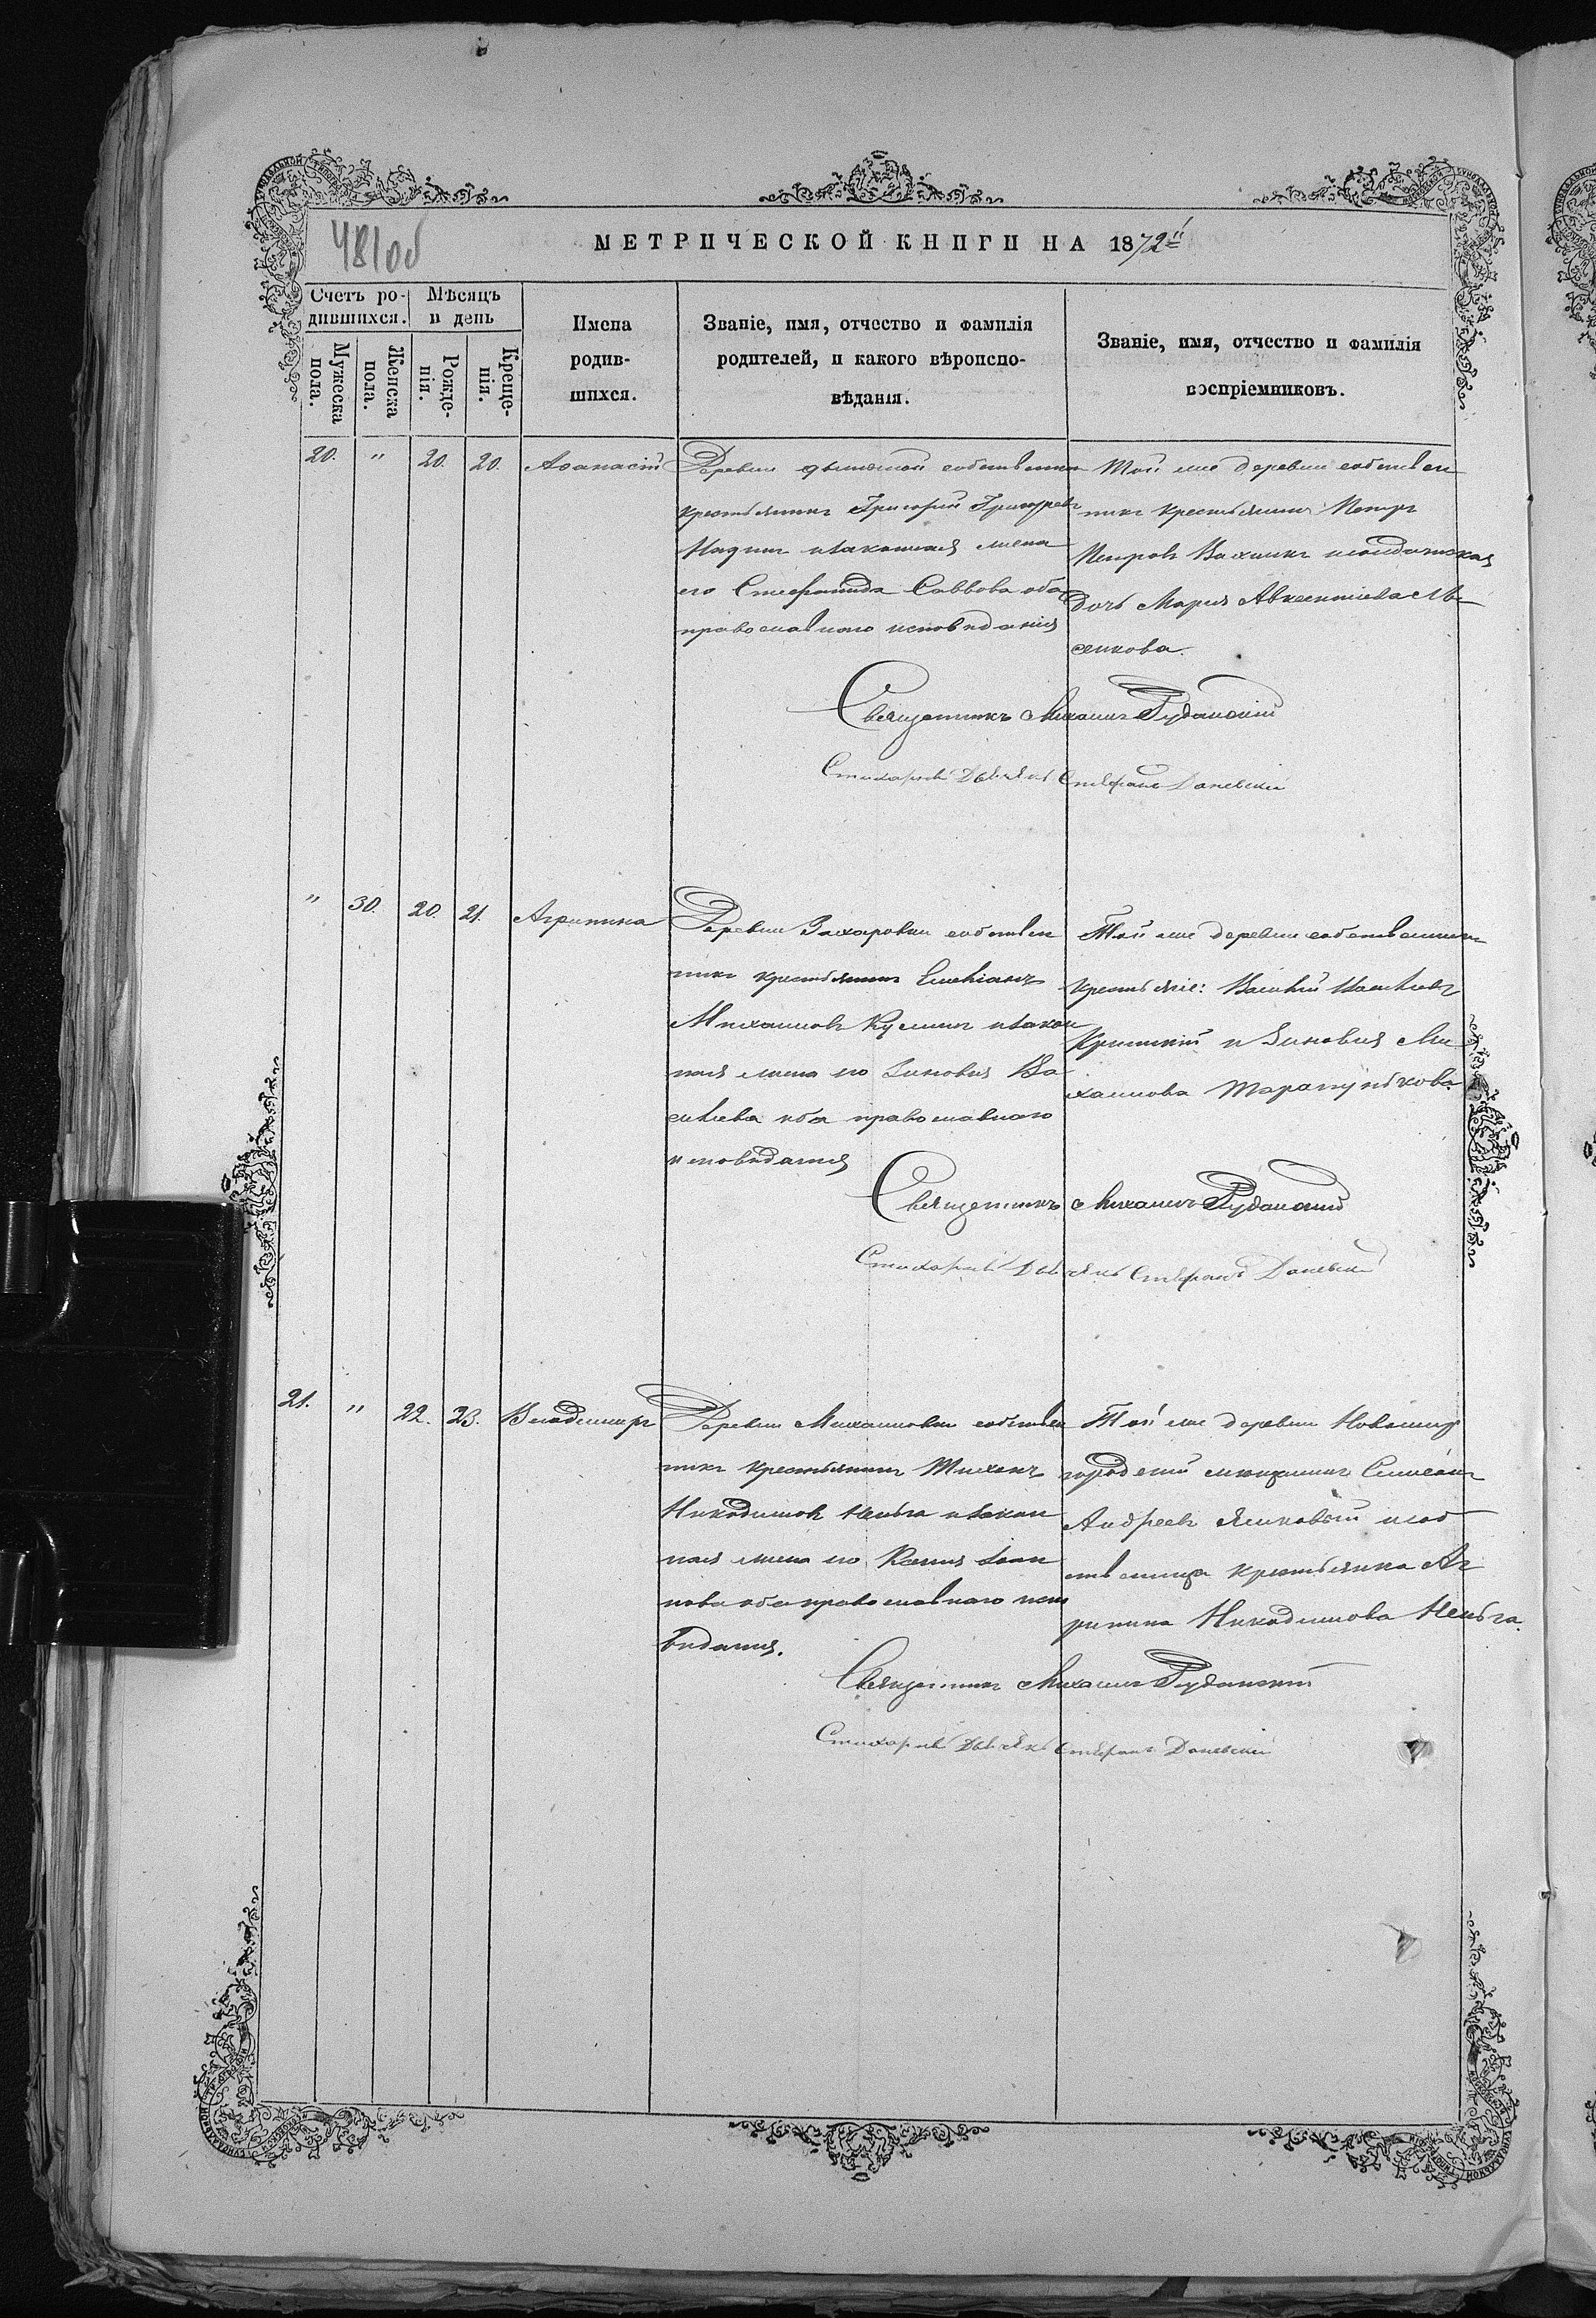 481об
МЕТРИЧЕСКОЙ КНИГИ НА 1872й
Счетъ ро-
дившихся.
Мѣсяцъ
и день
Мужеска
пола.
Женска
пола.
Рожде-
нія.
Креще-
нія.
Имена
родив-
шихся.
Званіе, имя, отчество и фамилія
родителей, и какого вѣроиспо-
вѣданія.
Званіе, имя, отчество и фамилія
воспріемниковъ.
20. " 20. 20. Аѳанасій
Деревни собственникъ
крестьянинъ Григорій Григорьевъ
изаконная жена
его Стефанида Саввова оба
православного исповѣданія
Той же деревни собствен
никъ крестьянинъ Петръ
Петровъ
дочь Марія Авксентіева Лы
сенкова.
Священникъ Михаилъ Руданскій
Стихарный Дьячекъ Стефанъ Даневскій
" 30. 20. 21. Агрипина
Деревни Захаровки собствен
никъ крестьянинъ Емеліанъ
Михаиловъ изакон
ная жена его Зиновія Ва
сильева оба православного
исповѣданія
Той же деревни собственники
крестьяне: Василій Васильевъ
и Зиновія Ми
хаилова Тарапунькова
Священникъ Михаилъ Руданскій
Стихарный Дьячекъ Стефанъ Даневскій
21. " 22. 23. Владимиръ
Деревни Михаиловки собствен
никъ крестьянинъ Тихонъ
Никодимовъ Неньга изакон
ная жена его Ксенія Іоан
нова оба православного испо
вѣданія.
Той же деревни Новомир
городскій мещанинъ Симеонъ
Андреевъ исоб
ственница крестьянка Аг
рипина Никодимова Неньга.
Священникъ Михаилъ Руданскій
Стихарный Дьячекъ Стефанъ Даневскій